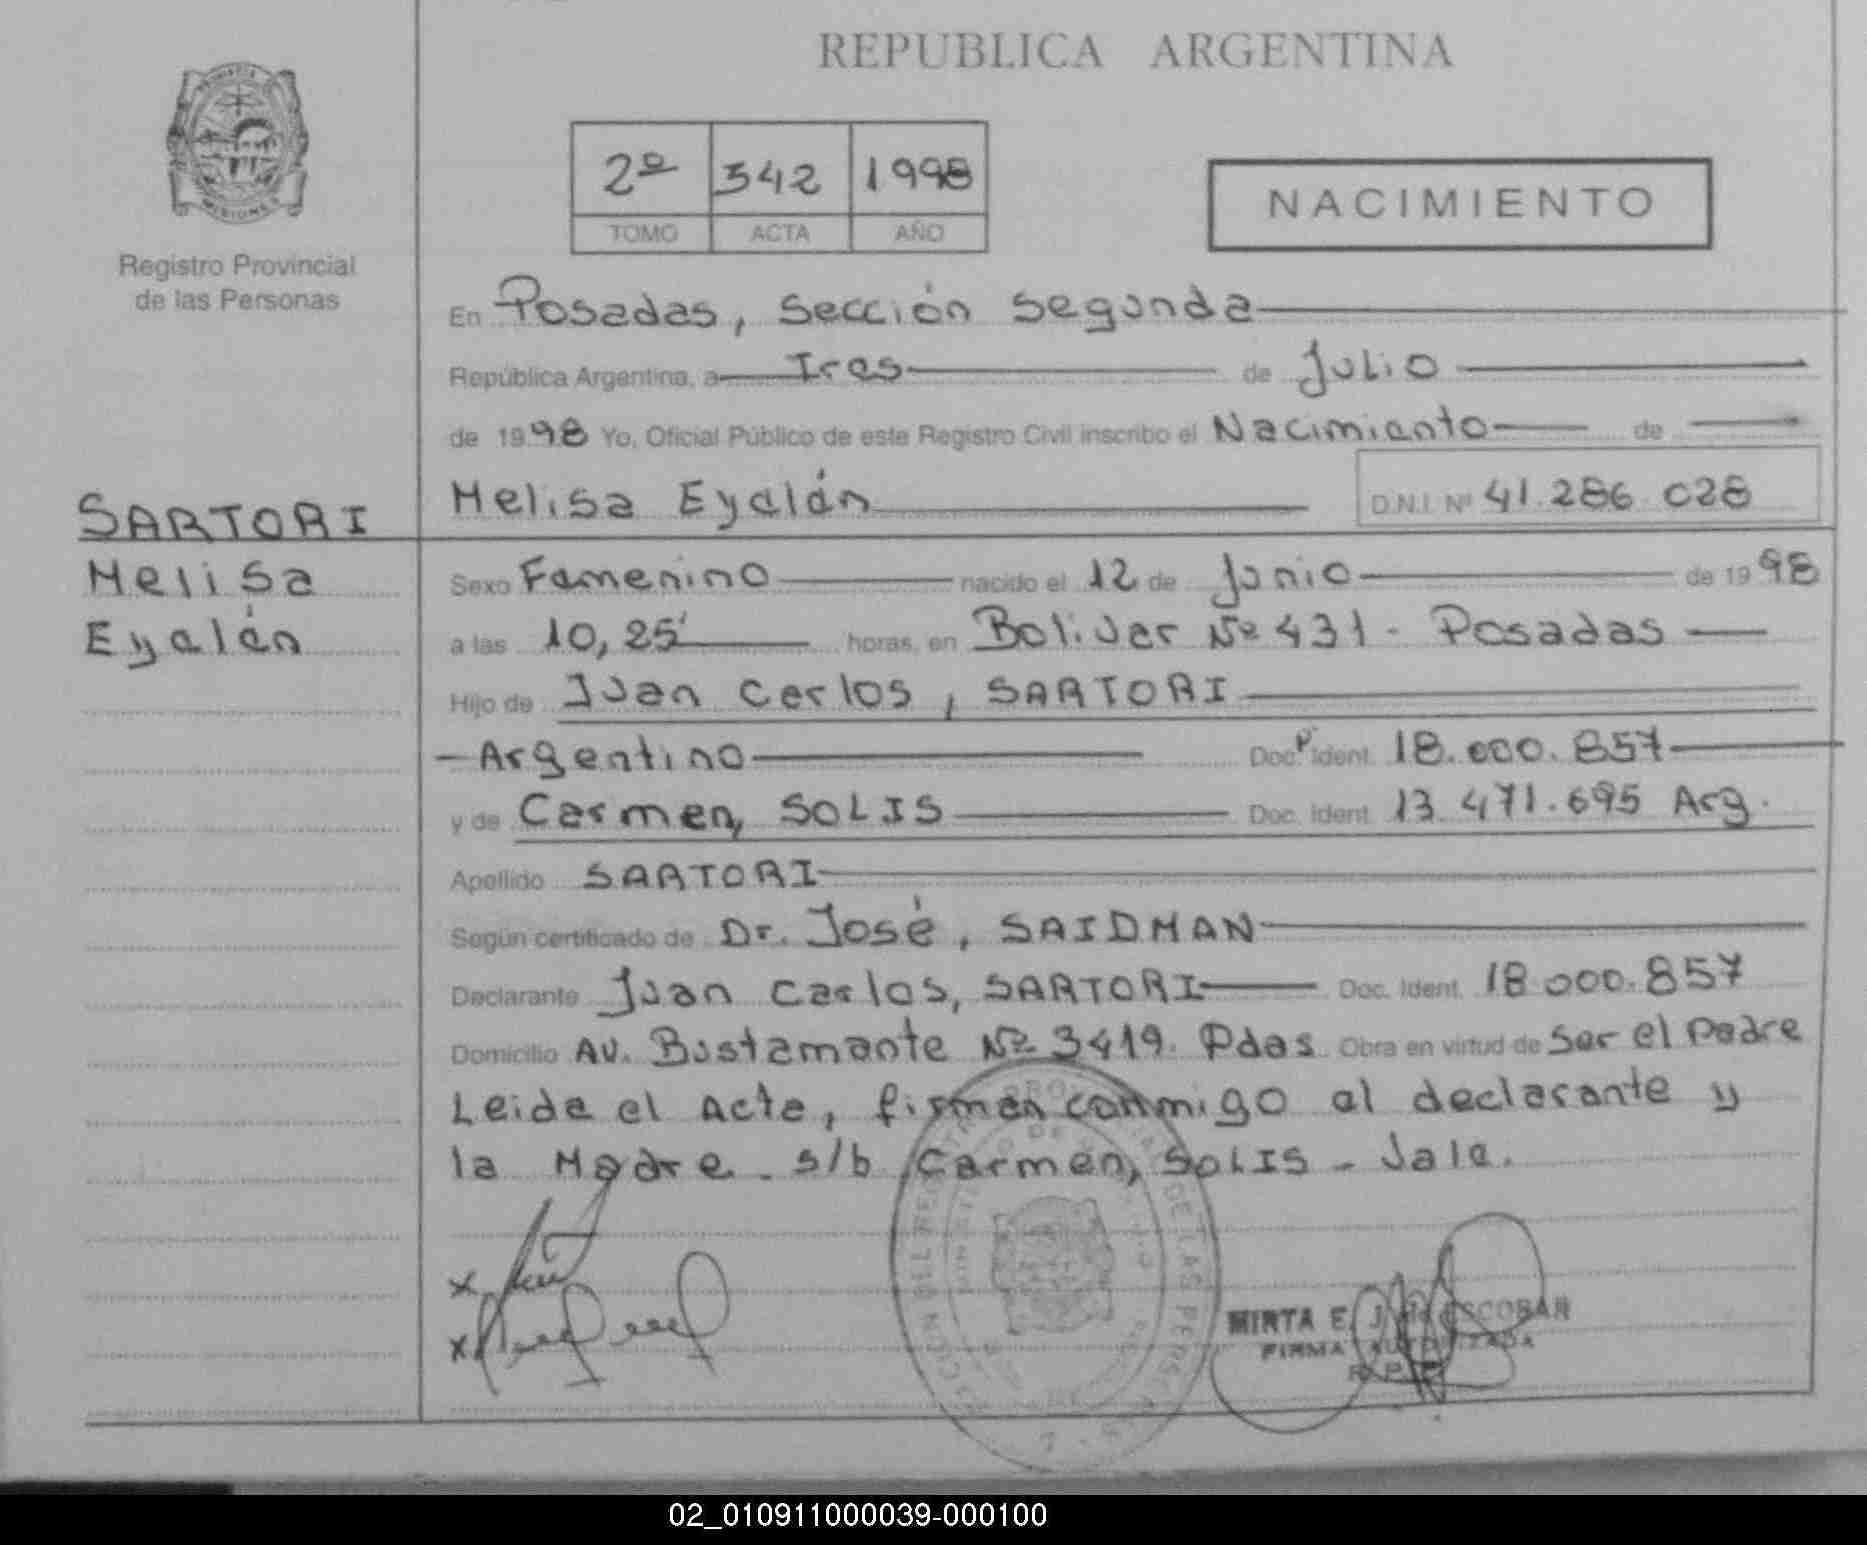 REPUBLICA ARGENTINA
MISIONES
Registro Provincial
de las Personas
2º 342 1998
TOMO ACTA AÑO
NACIMIENTO
En Posadas, Sección Segunda
República Argentina, a Tres de Julio
de 1998 Yo, Oficial Público de este Registro Civil inscribo el Nacimiento de
Melisa Eyalén D.N.I. Nº 41.286.028
SARTORI
Melisa
Eyalén
Sexo Femenino nacido el 12 de Junio de 1998
a las 10,25' horas, en Bolivar Nº 431 - Posadas
Hijo de Juan Carlos, SARTORI
Argentino Doc. Ident. 18.000.857
y de Carmen, SOLIS Doc. Ident. 13.471.695 Arg.
Apellido SARTORI
Según certificado de Dr. José, SAIDMAN
Declarante Juan Carlos, SARTORI Doc. Ident. 18.000.857
Domicilio AV. Bustamante Nº 3419. Pdas Obra en virtud de Ser el Padre
Leida el Acta, firman conmigo el declarante y
la Madre. s/b Carmen, SOLIS - Vale.
MIRTA E. ESCOBAR
FIRMA AUTORIZADA
02_010911000039-000100